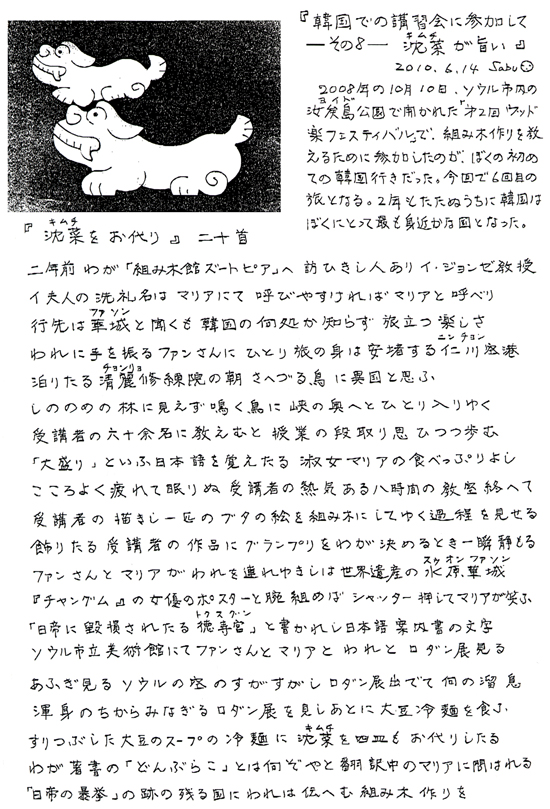 『韓国での講習会に参加して
―その8― 沈菜が旨い』
キムチ
2010.6.14 Sabu
2008年の10月10日、ソウル市内の
汝矣島公園で開かれた「第2回ウッド
ヨイド
楽フェスティバル」で、組み木作りを教
えるために参加したのが、ぼくの初め
ての韓国行きだった。今回で6回目の
旅となる。2年もたたぬうちに韓国は
ぼくにとって最も身近かな国となった。
『沈菜をお代り』 二十首
キムチ
二年前 わが「組み木館ズートピア」へ 訪ひきし人あり イ・ジョンゼ教授
イ夫人の 洗礼名は マリアにて 呼びやすければ マリアと呼べり
行先は 華城と聞くも 韓国の 何処か知らず 旅立つ楽しさ
ファソン
われに手を振る ファンさんに ひとり旅の身は 安堵する 仁川空港
ニンチョン
泊りたる 清麗修練院の朝 さへづる鳥に 異国と思ふ
チョンリョ
しののめの 林に見えず 鳴く鳥に 峡の奥へと ひとり入りゆく
受講者の 六十余名に 教えむと 授業の 段取り思ひつつ歩む
「大盛り」といふ日本語を 覚えたる 淑女マリアの 食べっぷりよし
こころよく 疲れて眠りぬ 受講者の 熱気ある 八時間の 教室終へて
受講者の 描きし一匹の ブタの絵を 組み木にしてゆく 過程を見せる
飾りたる 受講者の 作品に グランプリを わが決めるとき 一瞬静もる
ファンさんと マリアが われを連れゆきしは 世界遺産の 水原華城
スゥオンファソン
『チャングム』の 女優のポスターと 腕組めば シャッター押して マリアが笑ふ
「日帝に 毀損されたる 徳寿宮」と 書かれし日本語 案内書の文字
トクスグン
ソウル市立美術館にて ファンさんと マリアと われと ロダン展見る
あふぎ見る ソウルの空の すがすがし ロダン展出でて 何の溜息
渾身の ちからみなぎる ロダン展を 見しあとに 大豆冷麺を食ふ
すりつぶした 大豆のスープの 冷麺に 沈菜を 四皿も お代りしたる
キムチ
わが著書の 「どんぶらこ」とは 何ぞやと 翻訳中の マリアに問はれる
「日帝の暴挙」の 跡の残る国に われは伝へむ 組み木作りを